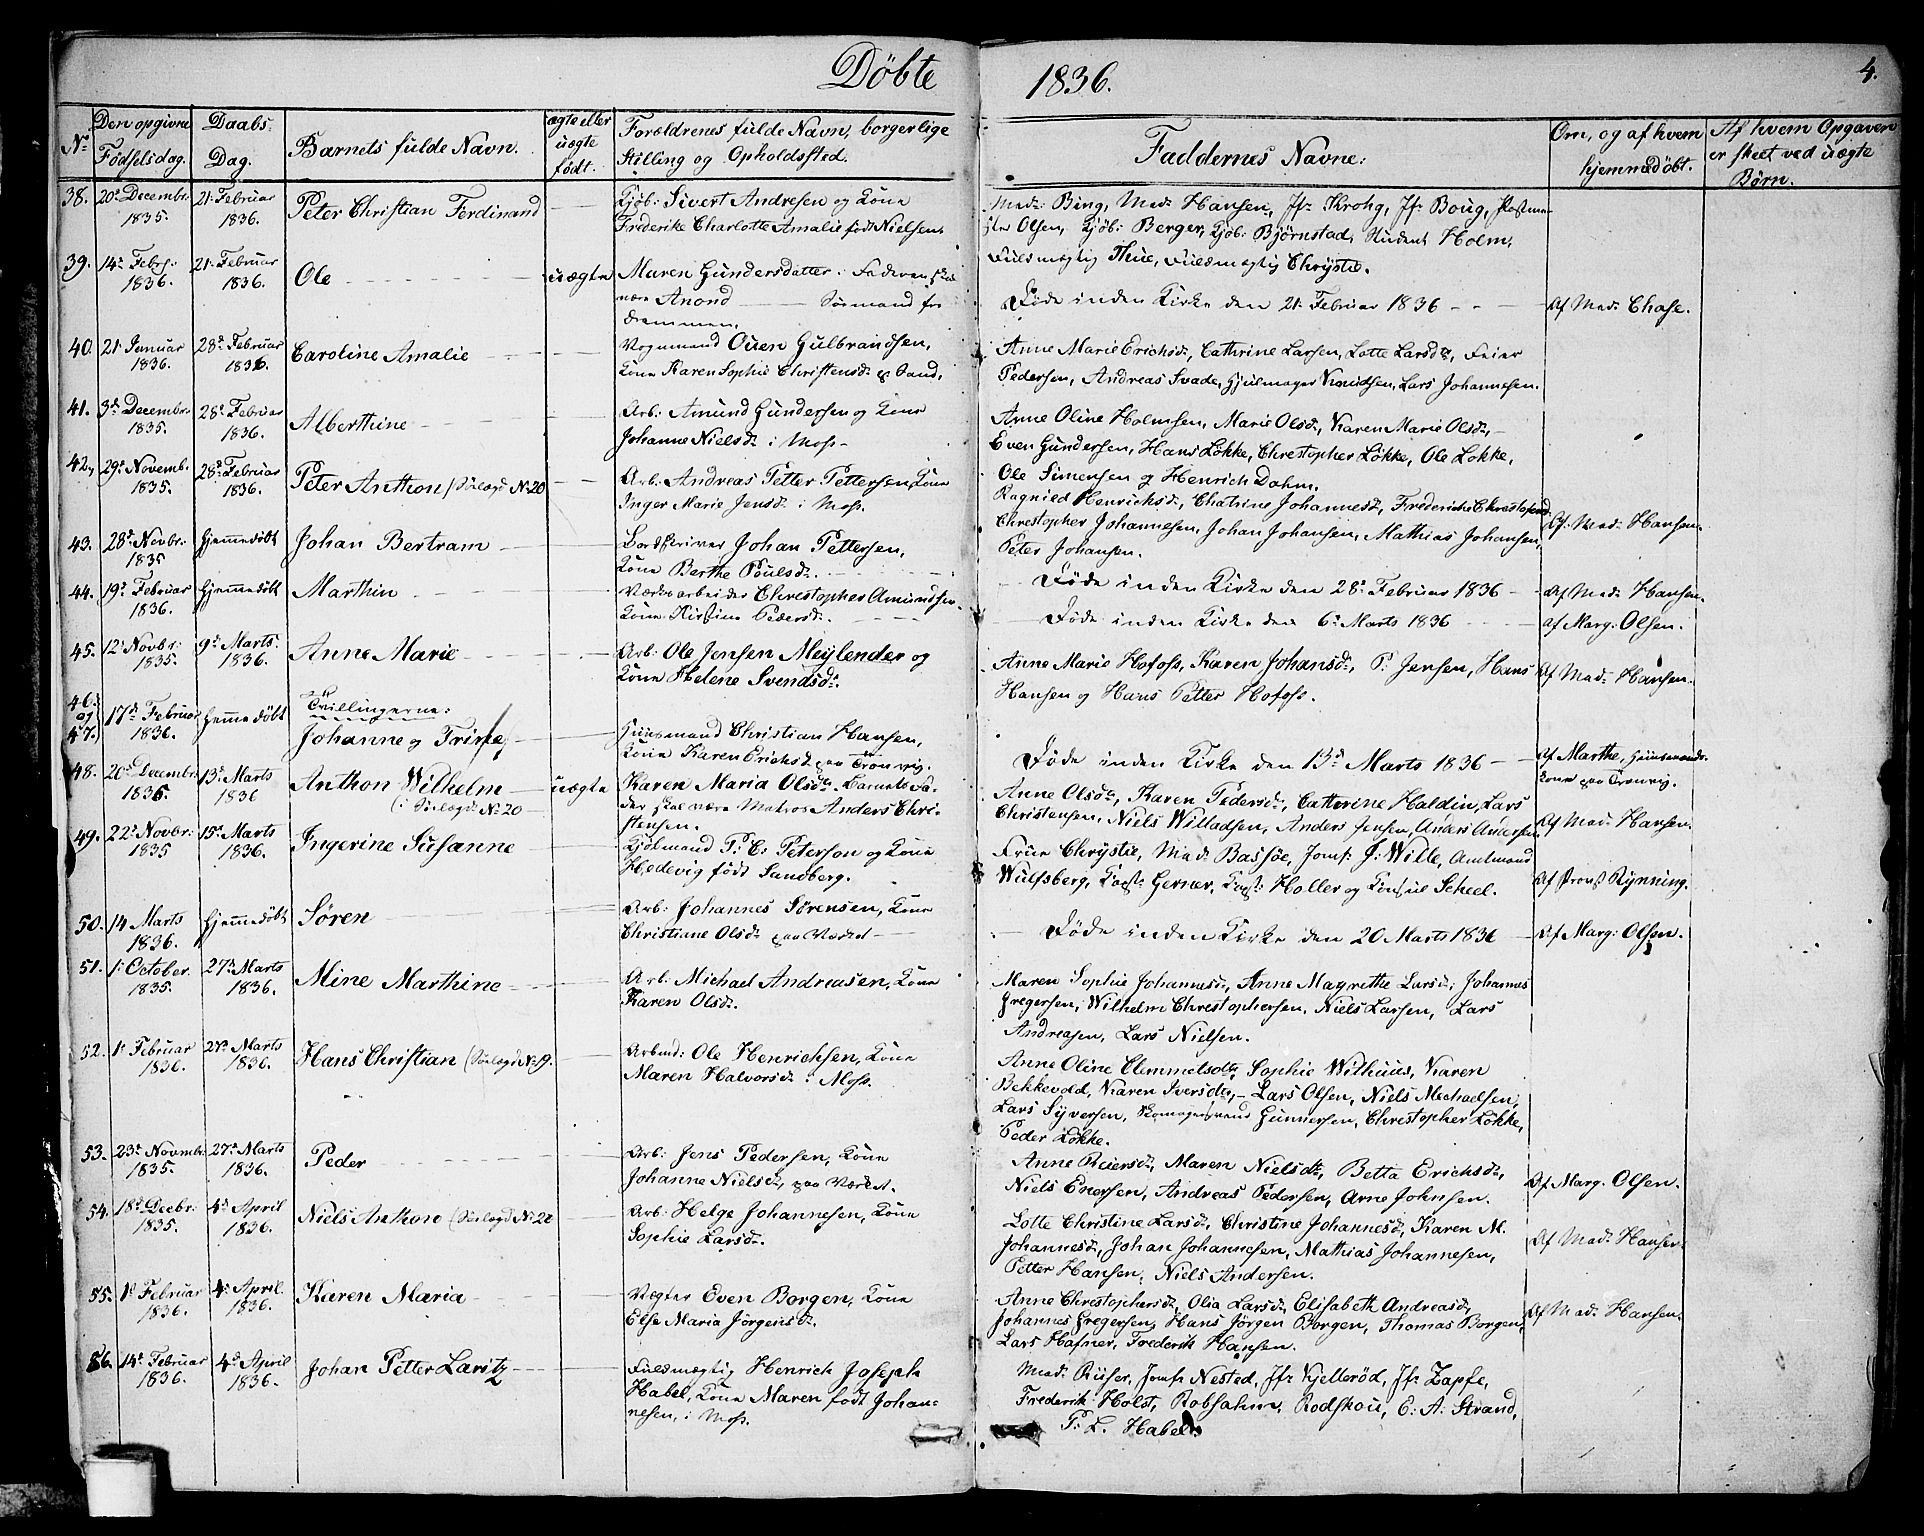 Döbte 1836.
4.
No
Den opgivne Födselsdag.
Daabs Dag.
Barnets fulde Navn.
ægte eller uægte födt.
Forældrenes fulde Navn, borgerlige Stilling og Opholdssted.
Faddernes Navne:
Om, og af hvem hjemmedöbt.
Af hvem Opgaven er skeet ved uægte Börn.
38. 20d Decembr: 1835. 21. Februar 1836. Peter Christian Ferdinand
Kjöb: Sivert Andresen og Kone
Frederike Charlotte Amalie födt Nielsen.
Mad: Bing, Mad: Hansen, Jfr Krohg, Jfr Boug, Postme-
ster Olsen, Kjöb: Berger, Kjöb: Björnstad, Student Holm,
Fuldmægtig Thue, Fuldmægtig Chrystie.
39. 14de Febr: 1836. 21. Februar 1836. Ole uægte
Maren Gundersdatter. Faderen skal
være Anond Sömand fra
Drammen.
Döde inden Kirke den 21. Februar 1836
Af Mad: Chase.
40. 21. Januar 1836. 28d Februar 1836. Caroline Amalie
Vognmand Ouen Gulbrandsen,
Kone Karen Sophie Christensd: p Sand.
Anne Marie Erichsd:, Cathrine Larsen, Lotte Larsdr, Feier
Pedersen, Andreas Svade, Hjulmager Knudsen, Lars Johannesen.
41. 3d Decembr: 1835. 28d Februar 1836. Alberthine
Arb: Amund Gundersen og Kone
Johanne Nielsd: i Moss
Anne Oline Holmsen, Marie Olsd:, Karen Marie Olsd:,
Even Gundersen, Hans Lökke, Christopher Lökke, Ole Lökke,
Ole Simensen og Henrich Dahm.
42. 29d Novemb. 1835. 28d Februar 1836. Peter Anthon (Sölægd No 20
Arb: Andreas Petter Pettersen, Kone
Inger Marie Jensd: i Moss.
Ragnied Henrichsd:, Chatrine Johannesd:, Frederiche Chrestophersd:
Chrestopher Johannesen, Johan Johansen, Mathias Johansen,
Peter Johansen.
Af: Mad: Hansen.
43. 28d Novbr: 1835 Hjemmedöbt Johan Bertram
Bordskriver Johan Pettersen,
Kone Berthe Poulsd:.
Döde inden Kirke den 28d Februar 1836
Af Mad: Hansen.
44. 19d Februar 1836. Hjemmedöbt Marthin
Værksarbeider Chrestopher Amundsen
Kone Kirstine Pedersd:.
Döde inden Kirke den 6d Marts 1836
af Marg: Olsen.
45. 12d Novbr: 1835. 9d Marts 1836. Anne Marie
Arb: Ole Jensen Meylender og
Kone Helene Svendsd:
Anne Marie Hofoss, Karen Johansd:, P: Jensen, Hans
Hansen og Hans Petter Hofoss.
Af Mad: Hansen.
46. og 47. 17d Februar 1836. Hjemmedöbt Tvillingerne: Johanne og Trine
Huusmand Christian Hansen,
Kone Karen Erichsd: paa Tronvig.
Döde inden Kirke den 13d Marts 1836
Af Marthe, Huusmands-
kone paa Tronvig.
48. 20d Decembr: 1835. 13d Marts 1836 Anthon Wilhelm (i Sölægd No 20 uægte
Karen Maria Olsdr. Barnets Fa-
der skal være Matros Anders Chri-
stensen.
Anne Olsdr, Karen Pedersd:, Catherine Haldin, Lars
Christensen, Niels Willadsen, Anders Jensen, Anders Andersen.
Af Mad: Hansen.
49. 22d Novbr: 1835 15d Marts 1836. Ingerine Susanne
Kjölmand P: C: Peterson og Kone
Hedevig födt Sandberg.
Frue Chrystie, Mad: Bassöe, Jomf: J: Wille, Amtmand
Wulfsberg, Kapt: Gerner, Kapt: Holler og Konsul Scheel.
Af Provst Rynning.
50. 14 Marts 1836. Hjemmedöbt Sören
Arb: Johannes Sörensen, Kone
Christiane Olsd: paa Værket
Döde inden Kirke den 20 Marts 1836
Af Marg: Olsen.
51. 1: October 1835. 27d Marts 1836. Mine Marthine
Arb: Michael Andreasen, Kone
Karen Olsd:
Maren Sophie Johannesd:, Anne Magrethe Larsd:, Johannes
Gregersen, Wilhelm Chrestophersen, Niels Larsen, Lars
Andreasen, Lars Nielsen.
52. 1d Februar 1836. 27d Marts 1836. Hans Christian (Sölægd No 19.
Arbmd: Ole Henrichsen, Kone
Maren Halvorsd: i Moss.
Anne Oline Clemmetsdtr, Sophie Withuus, Karen
Bekkevold, Karen Iversdtr, Lars Olsen, Niels Michaelsen,
Lars Syversen, Skomagersvend Gunnersen, Christopher Lökke,
Peder Lökke.
53. 23d Novmbr: 1835. 27d Marts 1836. Peder
Arb: Jens Pedersen, Kone
Johanne Nielsd:, paa Værket.
Anne Reiersd:, Maren Nielsdr, Betta Erichsd:,
Niels Enersen, Andreas Pedersen, Arne Johnsen.
Af Marg. Olsen.
54. 18d Decbr: 1835. 4d April 1836. Niels Anthon (Sölægd No 20
Arb: Helge Johannesen, Kone
Sophie Larsd:.
Lotte Christine Larsd:, Christine Johannesd:, Karen M.
Johannesd:, Johan Johannesen, Mathias Johannesen,
Petter Hansen, Niels Andersen.
Af Mad: Hansen.
55. 1d Februar 1836. 4d April 1836. Karen Maria
Vægter Even Borgen, Kone
Else Maria Jörgensd:
Anne Chrestophersd:, Olia Larsd:, Elisabeth Andreasd:,
Johannes Gregersen, Hans Jörgen Borgen, Thomas Borgen,
Lars Hafner, Frederik Hansen.
Af Mad: Hansen.
56. 14d Februar 1836. 4d April 1836. Johan Petter Laritz
Fuldmægtig Henrich Joseph
Habel, Kone Maren födt Johan-
nesen, i Moss.
Mad: Riiser, Jomf: Nested, Jfr Kjelleröd, Jfr Zapfe,
Frederik Holst, Robsahm, Rodskou, C: A: Strand,
P: L. Habel.